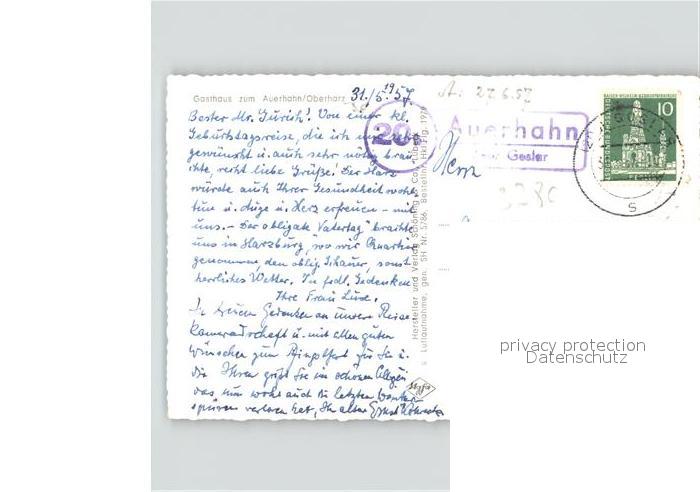 Gasthaus zum Auerhahn/Oberharz
31./5.1957
A: 27.6.57
Bester Mr. Gurish! Von einer kl.
Geburtstagsreise, die ich mir sehr
gewünscht u. auch sehr nötig brau-
chte, recht liebe Grüße! Der Harz
würde auch Ihrer Gesundheit wohl-
tun u. Auge u. Herz erfreuen - mit
uns. - Der obligate "Vatertag" brachte
uns in Harzburg, wo wir Quartier
genommen, den oblig. Schauer, sonst
herrliches Wetter. In frdl. Gedenken
Ihre Frau
In treuem Gedenken an unsere Reise-
kameradschaft u. mit allen guten
Wünschen zum Pfingstfest für Sie u.
die Ihren grüßt Sie im schönen
das nun wohl auch die letzten
spuren verloren hat, Ihr alter Ernst
Hersteller und Verlag Schöning & Co., Lübeck
Luftaufnahme, gen. SH Nr. 5/86. Bestellnr. Hkl Flg.
20
Auerhahn
über Goslar
Herrn
GOSLAR
s
10
DEUTSCHE POST
BERLIN
privacy protection
Datenschutz